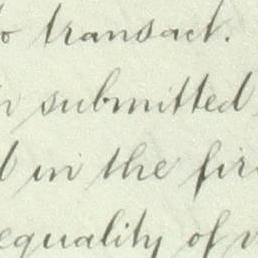 to transact.
submitted
in the
equality of